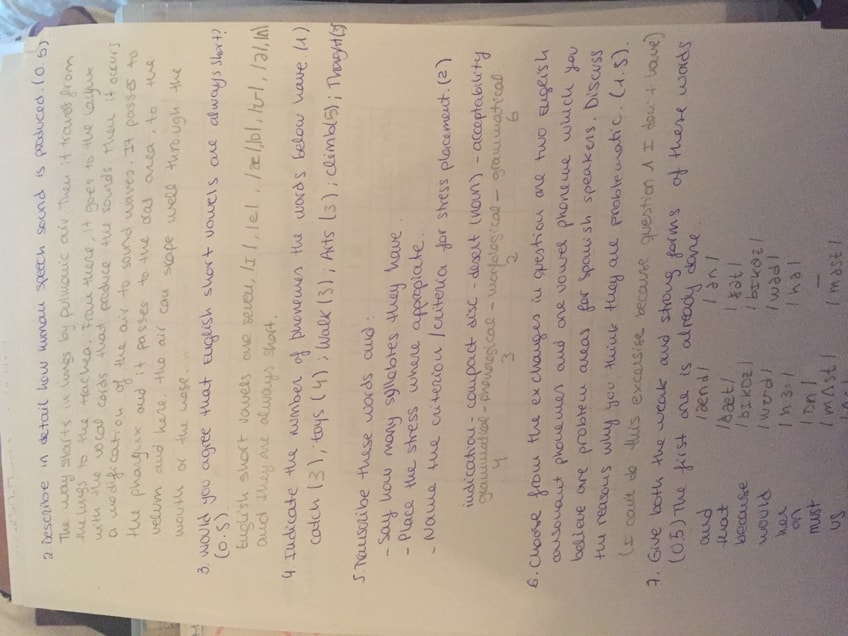 2. Describe in detail how human speech sound is produced. (0.5)
The way starts in lungs by pulmonic air. Then it travels from
the lungs to the trachea. From there, it goes to the larynx
with the vocal cords that produce the sounds. Then it occurs
a modification of the air to sound waves. It passes to
the pharynx and it passes to the oral area, to the
velum and here, the air can scape well through the
mouth or the nose.
3. Would you agree that English short vowels are always short?
(0.5)
English short vowels are seven, /ɪ/, /e/, /æ/, /ɒ/, /ʊ/, /ə/, /ʌ/
and they are always short.
4. Indicate the number of phonemes the words below have (1)
catch (3), toys (4); Walk (3); Arts (3); climb (5); Thought (3)
5. Transcribe these words and:
- Say how many syllables they have
- Place the stress where appropiate
- Name the criterion/criteria for stress placement. (2)
indication - compact disc - desert (noun) - acceptability
grammatical - phonological - morfological - grammatical
4 3 2 6
6. Choose from the exchanges in question one two English
consonant phonemes and one vowel phoneme which you
believe are problem areas for Spanish speakers. Discuss
the reasons why you think they are problematic. (1.5).
(I can't do this excersise because question 1 I don't have)
7. Give both the weak and strong forms of these words
(0.5) The first one is already done.
and /ænd/ /ən/
that /ðæt/ /ðət/
because /bɪkɒz/ /bɪkəz/
would /wʊd/ /wəd/
her /hɜː/ /hə/
on /ɒn/ —
must /mʌst/ /məst/
us